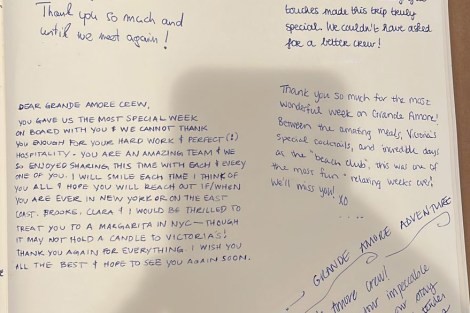 Thank you so much and
until we meet again!
touches made this trip truly
special. We couldn't have asked
for a better crew!
DEAR GRANDE AMORE CREW,
YOU GAVE US THE MOST SPECIAL WEEK
ON BOARD WITH YOU & WE CANNOT THANK
YOU ENOUGH FOR YOUR HARD WORK & PERFECT (!)
HOSPITALITY - YOU ARE AN AMAZING TEAM & WE
SO ENJOYED SHARING THIS TIME WITH EACH & EVERY
ONE OF YOU. I WILL SMILE EACH TIME I THINK OF
YOU ALL & HOPE YOU WILL REACH OUT IF/WHEN
YOU ARE EVER IN NEW YORK OR ON THE EAST
COAST. BROOKE, CLARA & I WOULD BE THRILLED TO
TREAT YOU TO A MARGARITA IN NYC - THOUGH
IT MAY NOT HOLD A CANDLE TO VICTORIA'S!
THANK YOU AGAIN FOR EVERYTHING. I WISH YOU
ALL THE BEST & HOPE TO SEE YOU AGAIN SOON.
Thank you so much for the most
wonderful week on Grande Amore!
Between the amazing meals, Victoria's
special cocktails, and incredible days
at the "beach club", this was one of
the most fun & relaxing weeks ever!
We'll miss you!
XO
GRANDE AMORE ADVENTURE
Amore crew!
impeccable
stay